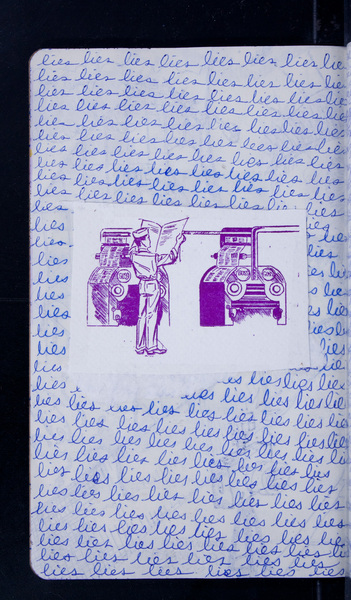 lies lies lies lies lies lies lies lie
lies lies lies lies lies lies lies lies
lies lies lies lies lies lies lies lies
lies lies lies lies lies lies lies lies
lies lies lies lies lies lies lies lies
lies lies lies lies lies lies lies lies
lies lies lies lies lies lies lies lies
lies lies lies lies lies lies lies lies
lies lies lies lies lies lies lies lies
lies lies lies lies lies lies lies lies
lies lies
lies lies
lies lies
lies lies
lies lies
lies lies
lies lies
lies lies
lies lies
lies lies
lies lies lies lies
lies lies lies lies lies lies lies lies
lies lies lies lies lies lies lies lies
lies lies lies lies lies lies lies lies
lies lies lies lies lies lies lies lies
lies lies lies lies lies lies lies lies
lies lies lies lies lies lies lies lies
lies lies lies lies lies lies lies lies
lies lies lies lies lies lies lies lies
lies lies lies lies lies lies lies lies
lies lies lies lies lies lies lies
lies lies lies lies lies lies